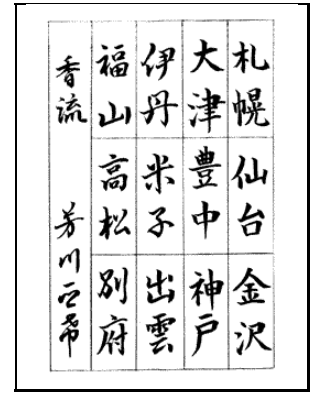 札幌 仙台 金沢
大津 豊中 神戸
伊丹 米子 出雲
福山 高松 別府
香流 芳川